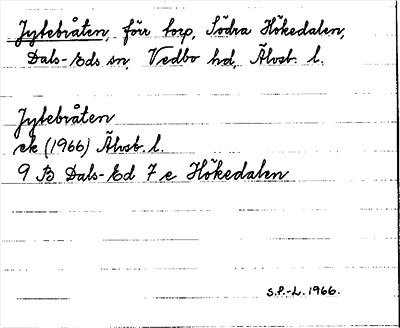 Jytebråten, förr torp, Södra Hökedalen,
Dals-Eds sn, Vedbo hd, Älvsb. l.
Jytebråten
ek (1966) Älvsb. l.
9 B Dals-Ed 7 e Hökedalen
S.P.-L. 1966.